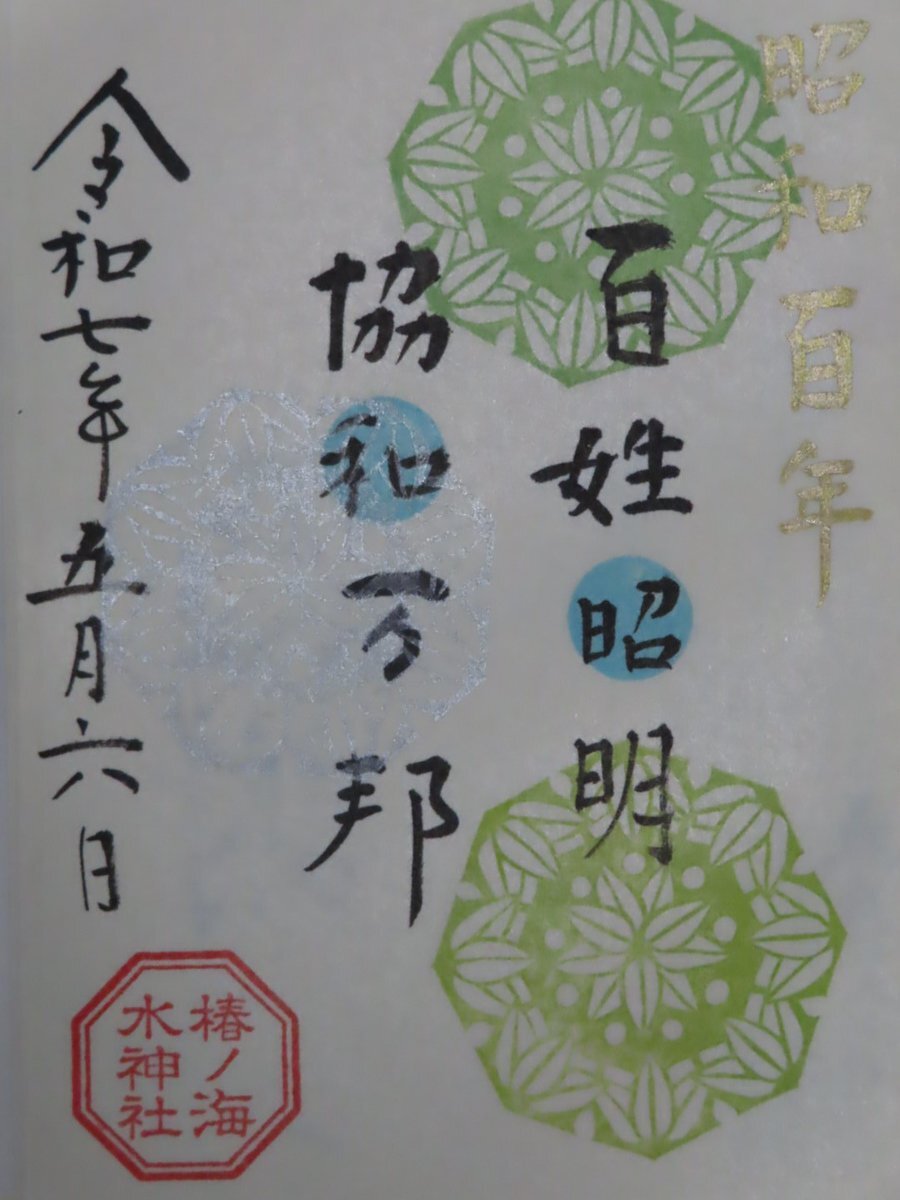 昭和百年
百姓昭明
協和万邦
令和七年五月六日
椿ノ海
水神社